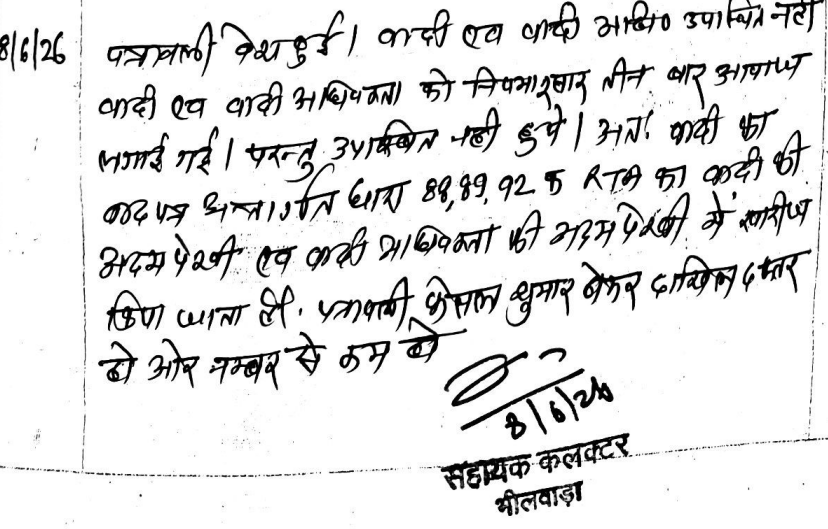 8/6/26 पत्रावली पेश हुई। वादी एव वादी अधि० उपस्थित नही
वादी एव वादी अधिवक्ता को नियमानुसार तीन बार आवाज
लगाई गई। परन्तु उपस्थित नही हुये। अतः वादी का
वाद पत्र अन्तर्गत धारा 88,89,92 क RTA का वादी की
अदम पेरवी एव वादी अधिवक्ता की अदम पेरवी में खारीज
किया जाता है। पत्रावली फैसल शुमार होकर दाखिल दफ्तर
हो ओर नम्बर से कम हो
8/6/26
सहायक कलक्टर
भीलवाड़ा